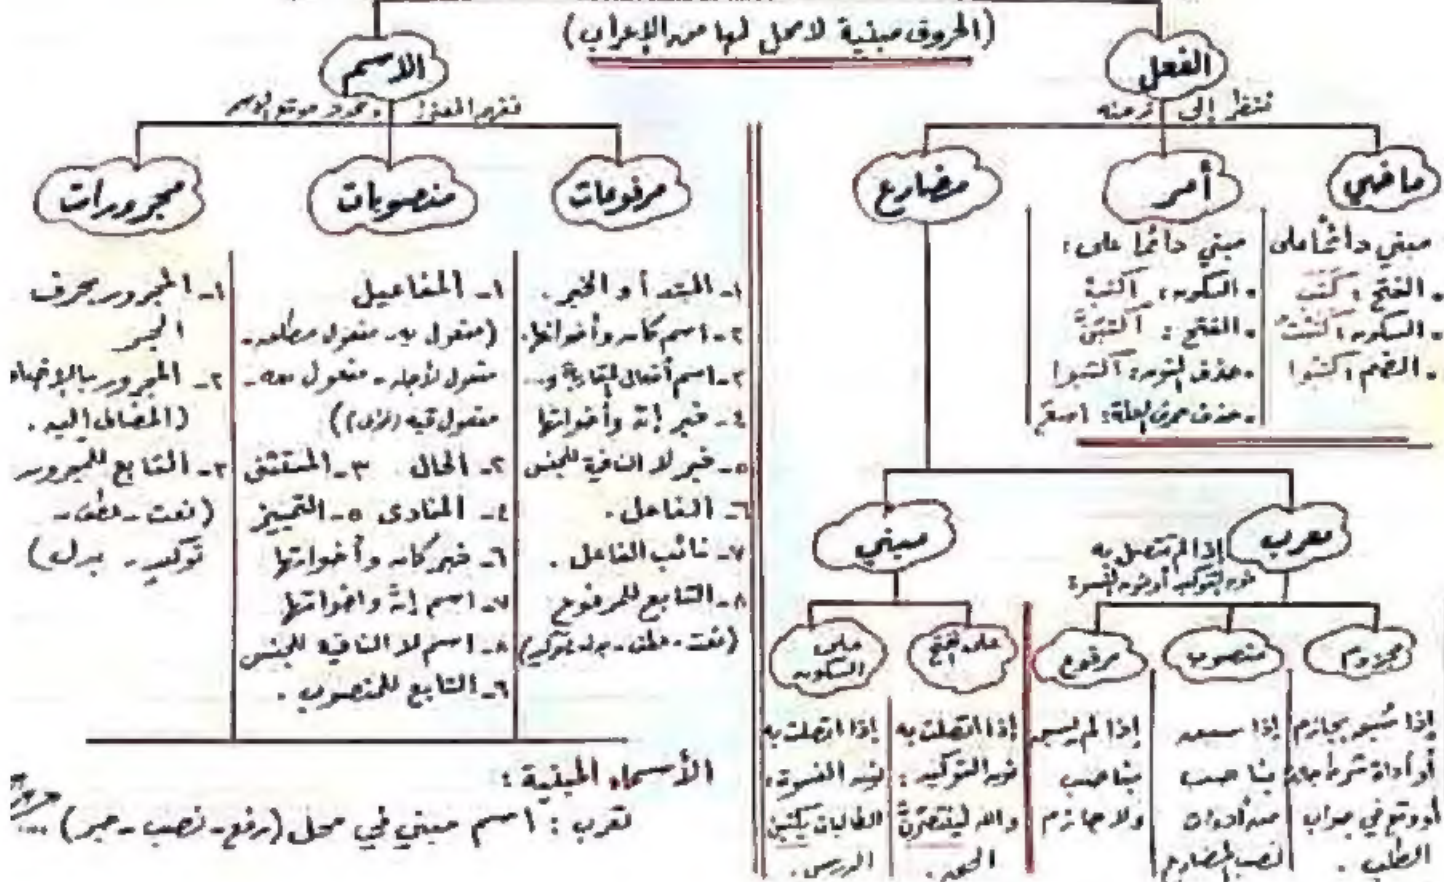 (الحروف مبنية لا محل لها من الإعراب)
الفعل
ننظر إلى زمنه
ماضي
مبني دائمًا على
. الفتح: كَتَبَ
. السكون: كتبْتُ
. الضم: كتبُوا
أمر
مبني دائمًا على:
. السكون: اكتبْ
. الفتح: اكتبَنَّ
. حذف النون: اكتبوا
. حذف حرف العلة:
مضارع
معرب
إذا لم تتصل به
نون التوكيد أو نون النسوة
مجزوم
إذا سُبق بجازم
أو أداة شرط جازمة
أو وقع في جواب
الطلب .
منصوب
إذا سبق
بناصب
من أدوات
نصب المضارع
مرفوع
إذا لم يسبق
بناصب
ولا جازم
مبني
على الفتح
إذا اتصلت به
نون التوكيد :
والله لينتصرنَّ
الحق .
على
السكون
إذا اتصلت به
نون النسوة :
الطالبات يكتبْنَ
الدرس .
الاسم
نفهم المعنى ونحدد موقع الاسم
مرفوعات
١- المبتدأ والخبر .
٢- اسم كان وأخواتها.
٣- اسم أفعال المقاربة و...
٤- خبر إنّ وأخواتها
٥- خبر لا النافية للجنس
٦- الفاعل .
٧- نائب الفاعل .
٨- التابع للمرفوع
(نعت - عطف - بدل - توكيد)
منصوبات
١- المفاعيل
(مفعول به - مفعول مطلق -
مفعول لأجله - مفعول معه -
مفعول فيه )
٢- الحال ٣- المستثنى
٤- المنادى ٥- التمييز
٦- خبر كان وأخواتها
٧- اسم إنّ وأخواتها
٨- اسم لا النافية للجنس
٩- التابع للمنصوب .
مجرورات
١- المجرور بحرف
الجر
٢- المجرور بالإضافة
(المضاف إليه .
٣- التابع للمجرور
(نعت - عطف -
توكيد - بدل)
الأسماء المبنية :
تعرب : اسم مبني في محل (رفع - نصب - جر)